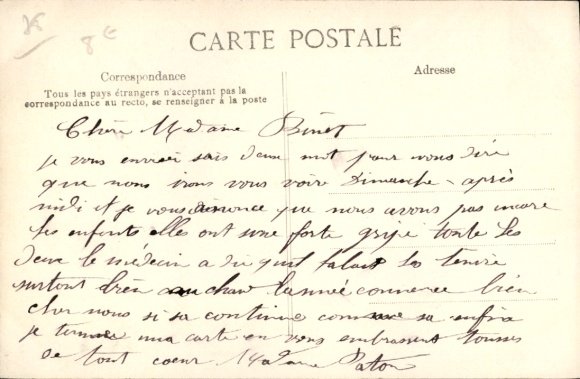 8 €
CARTE POSTALE
Correspondance
Adresse
Tous les pays étrangers n'acceptant pas la
correspondance au recto, se renseigner à la poste
Chère Madame Binet
je vous envoie ses deux mot pour vous dire
que nous irons vous voire Dimanche après
midi et je vous anonce que nous avons pas encore
les enfants elles ont une forte gripe toute les
deux le médecin a dit quil falait les tenire
surtout bien au chaud lannée commence bien
cher nous si sa continue comme sa enfin
je termine ma carte en vous embrassent tousses
de tout coeur Madame